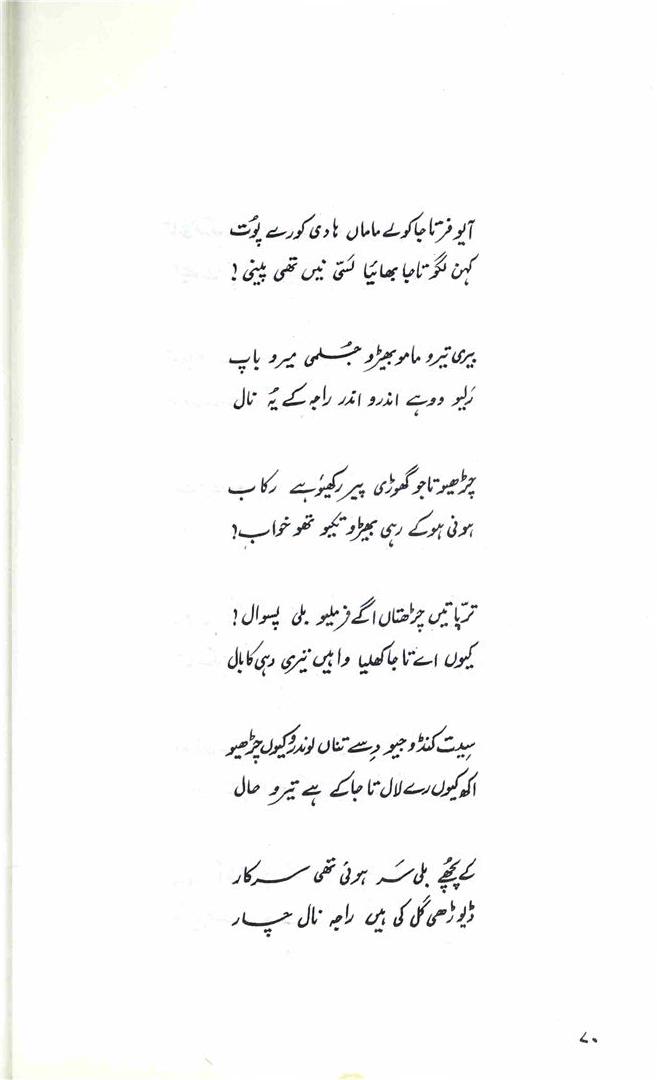 آیو فر تاجا کولے ماماں ہادی کورے پوُت
کہن لگو تاجا بھائیا لَسّی نیں تھی پینی !
بیری تیرو مامو بھیڑو جُلمی میرو باپ
رَلیو ووہے اندرو اندر راجہ کے یُہ نال
چڑھیو تاجو گھوڑی پیر رکھیؤ ہے رکاب
ہونی ہو کے رہی بھیڑو تکیو تھو خواب!
ترپّاتیں چڑھتاں اگے فر ملیو بلی پسوال !
کیوں اے تاجا کھلیا واہیں تیری دہی کا بال
سِیت کنڈو جیو دِسے تناں لوندڑو کیوں چڑھیو
اکھ کیوں رے لال تاجا کے ہے تیرو حال
کے پُچھے بلی سَر ہوئی تھی سرکار
ڈیوڑھی گل کی ہیں راجہ نال چار
۷۰